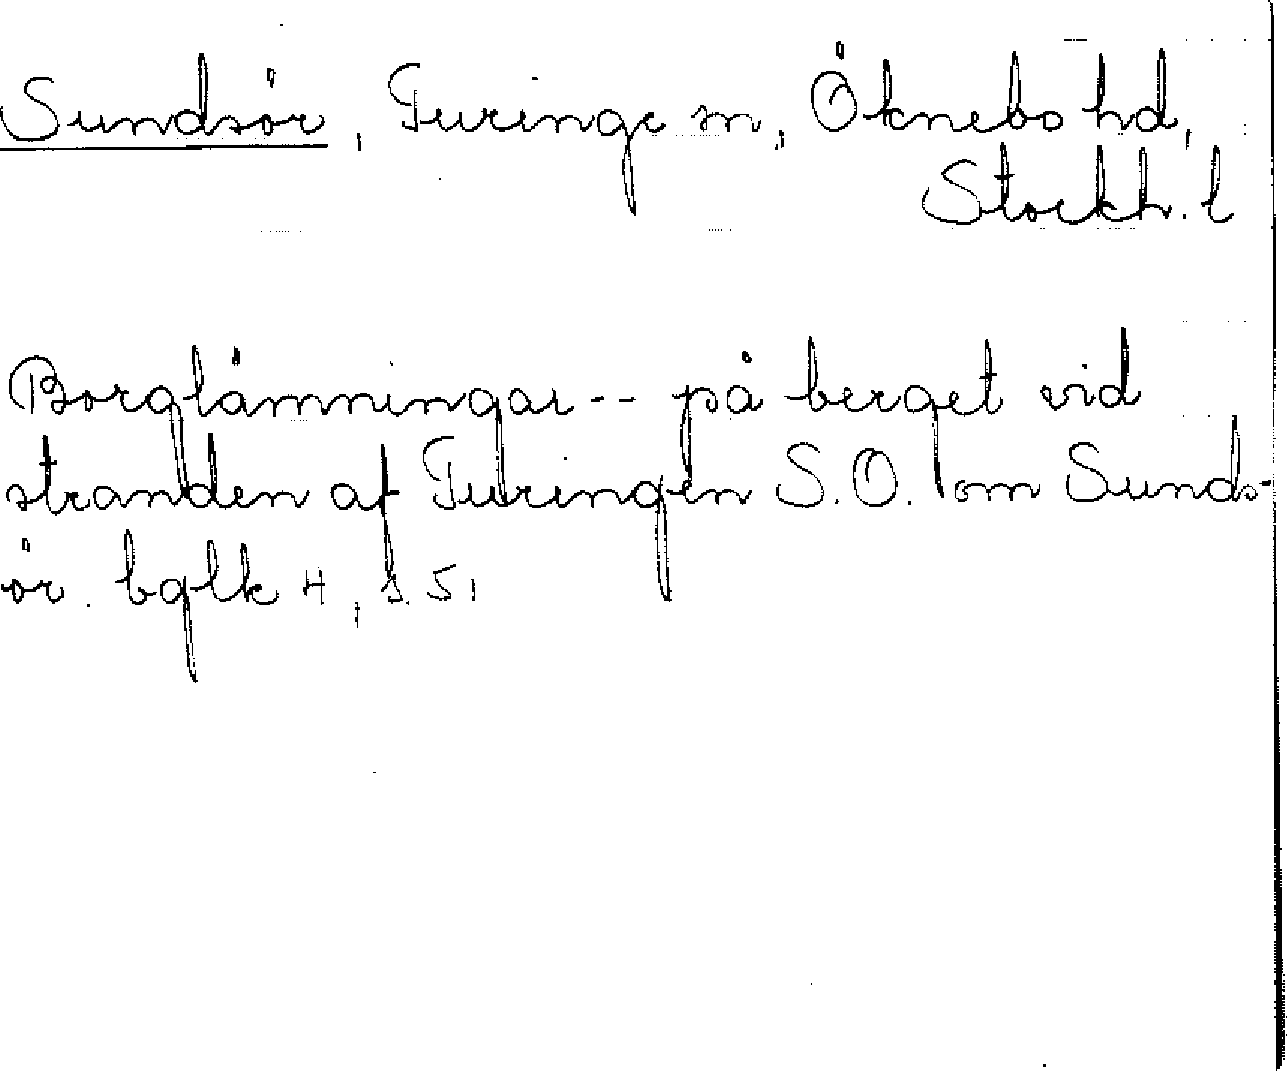 Sundsör, Turinge sn, Öknebo hd,
Stockh. l
Borglämningar -- på berget vid
stranden af Turingen S.O. om Sunds-
ör. bglk 4, s. 51